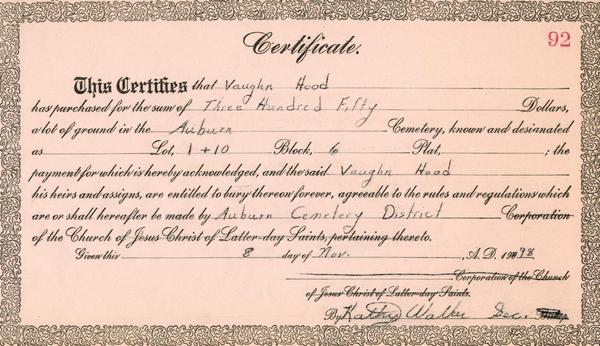 92
Certificate.
This Certifies that Vaughn Hood
has purchased for the sum of Three Hundred Fifty Dollars,
a lot of ground in the Auburn Cemetery, known and designated
as Lot, 1 + 10 Block, 6 Plat, ; the
payment for which is hereby acknowledged, and the said Vaughn Hood
his heirs and assigns, are entitled to bury thereon forever, agreeable to the rules and regulations which
are or shall hereafter be made by Auburn Cemetery District Corporation
of the Church of Jesus Christ of Latter-day Saints, pertaining thereto.
Given this 8 day of Nov. , A.D. 1998
Corporation of the Church
of Jesus Christ of Latter-day Saints.
By Kathy Walker Sec.